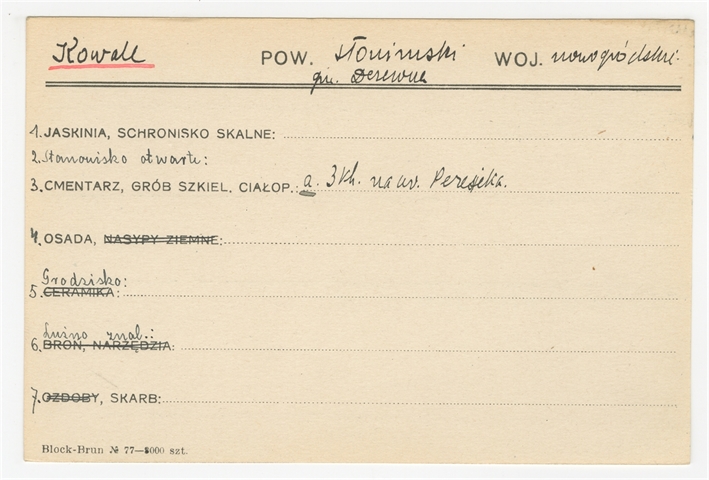 Kowale POW. słonimski WOJ. nowogródzki.
gm. Derewna
1. JASKINIA, SCHRONISKO SKALNE:
2. Stanowisko otwarte:
3. CMENTARZ, GRÓB SZKIEL. CIAŁOP.: a. 3 kh. na ur.
4. OSADA, NASYPY ZIEMNE:
Grodzisko:
5. CERAMIKA:
Luźno znal.:
6. BROŃ, NARZĘDZIA:
7. OZDOBY, SKARB:
Block-Brun № 77—3000 szt.